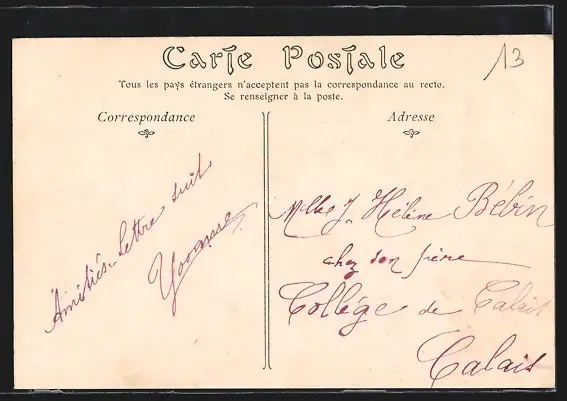 Carte Postale
13
Tous les pays étrangers n'acceptent pas la correspondance au recto.
Se renseigner à la poste.
Correspondance
Adresse
Amitiés. Lettre suit
Yvonne
Mlle J. Hélène Bébin
chez son frère
Collège de Calais
Calais